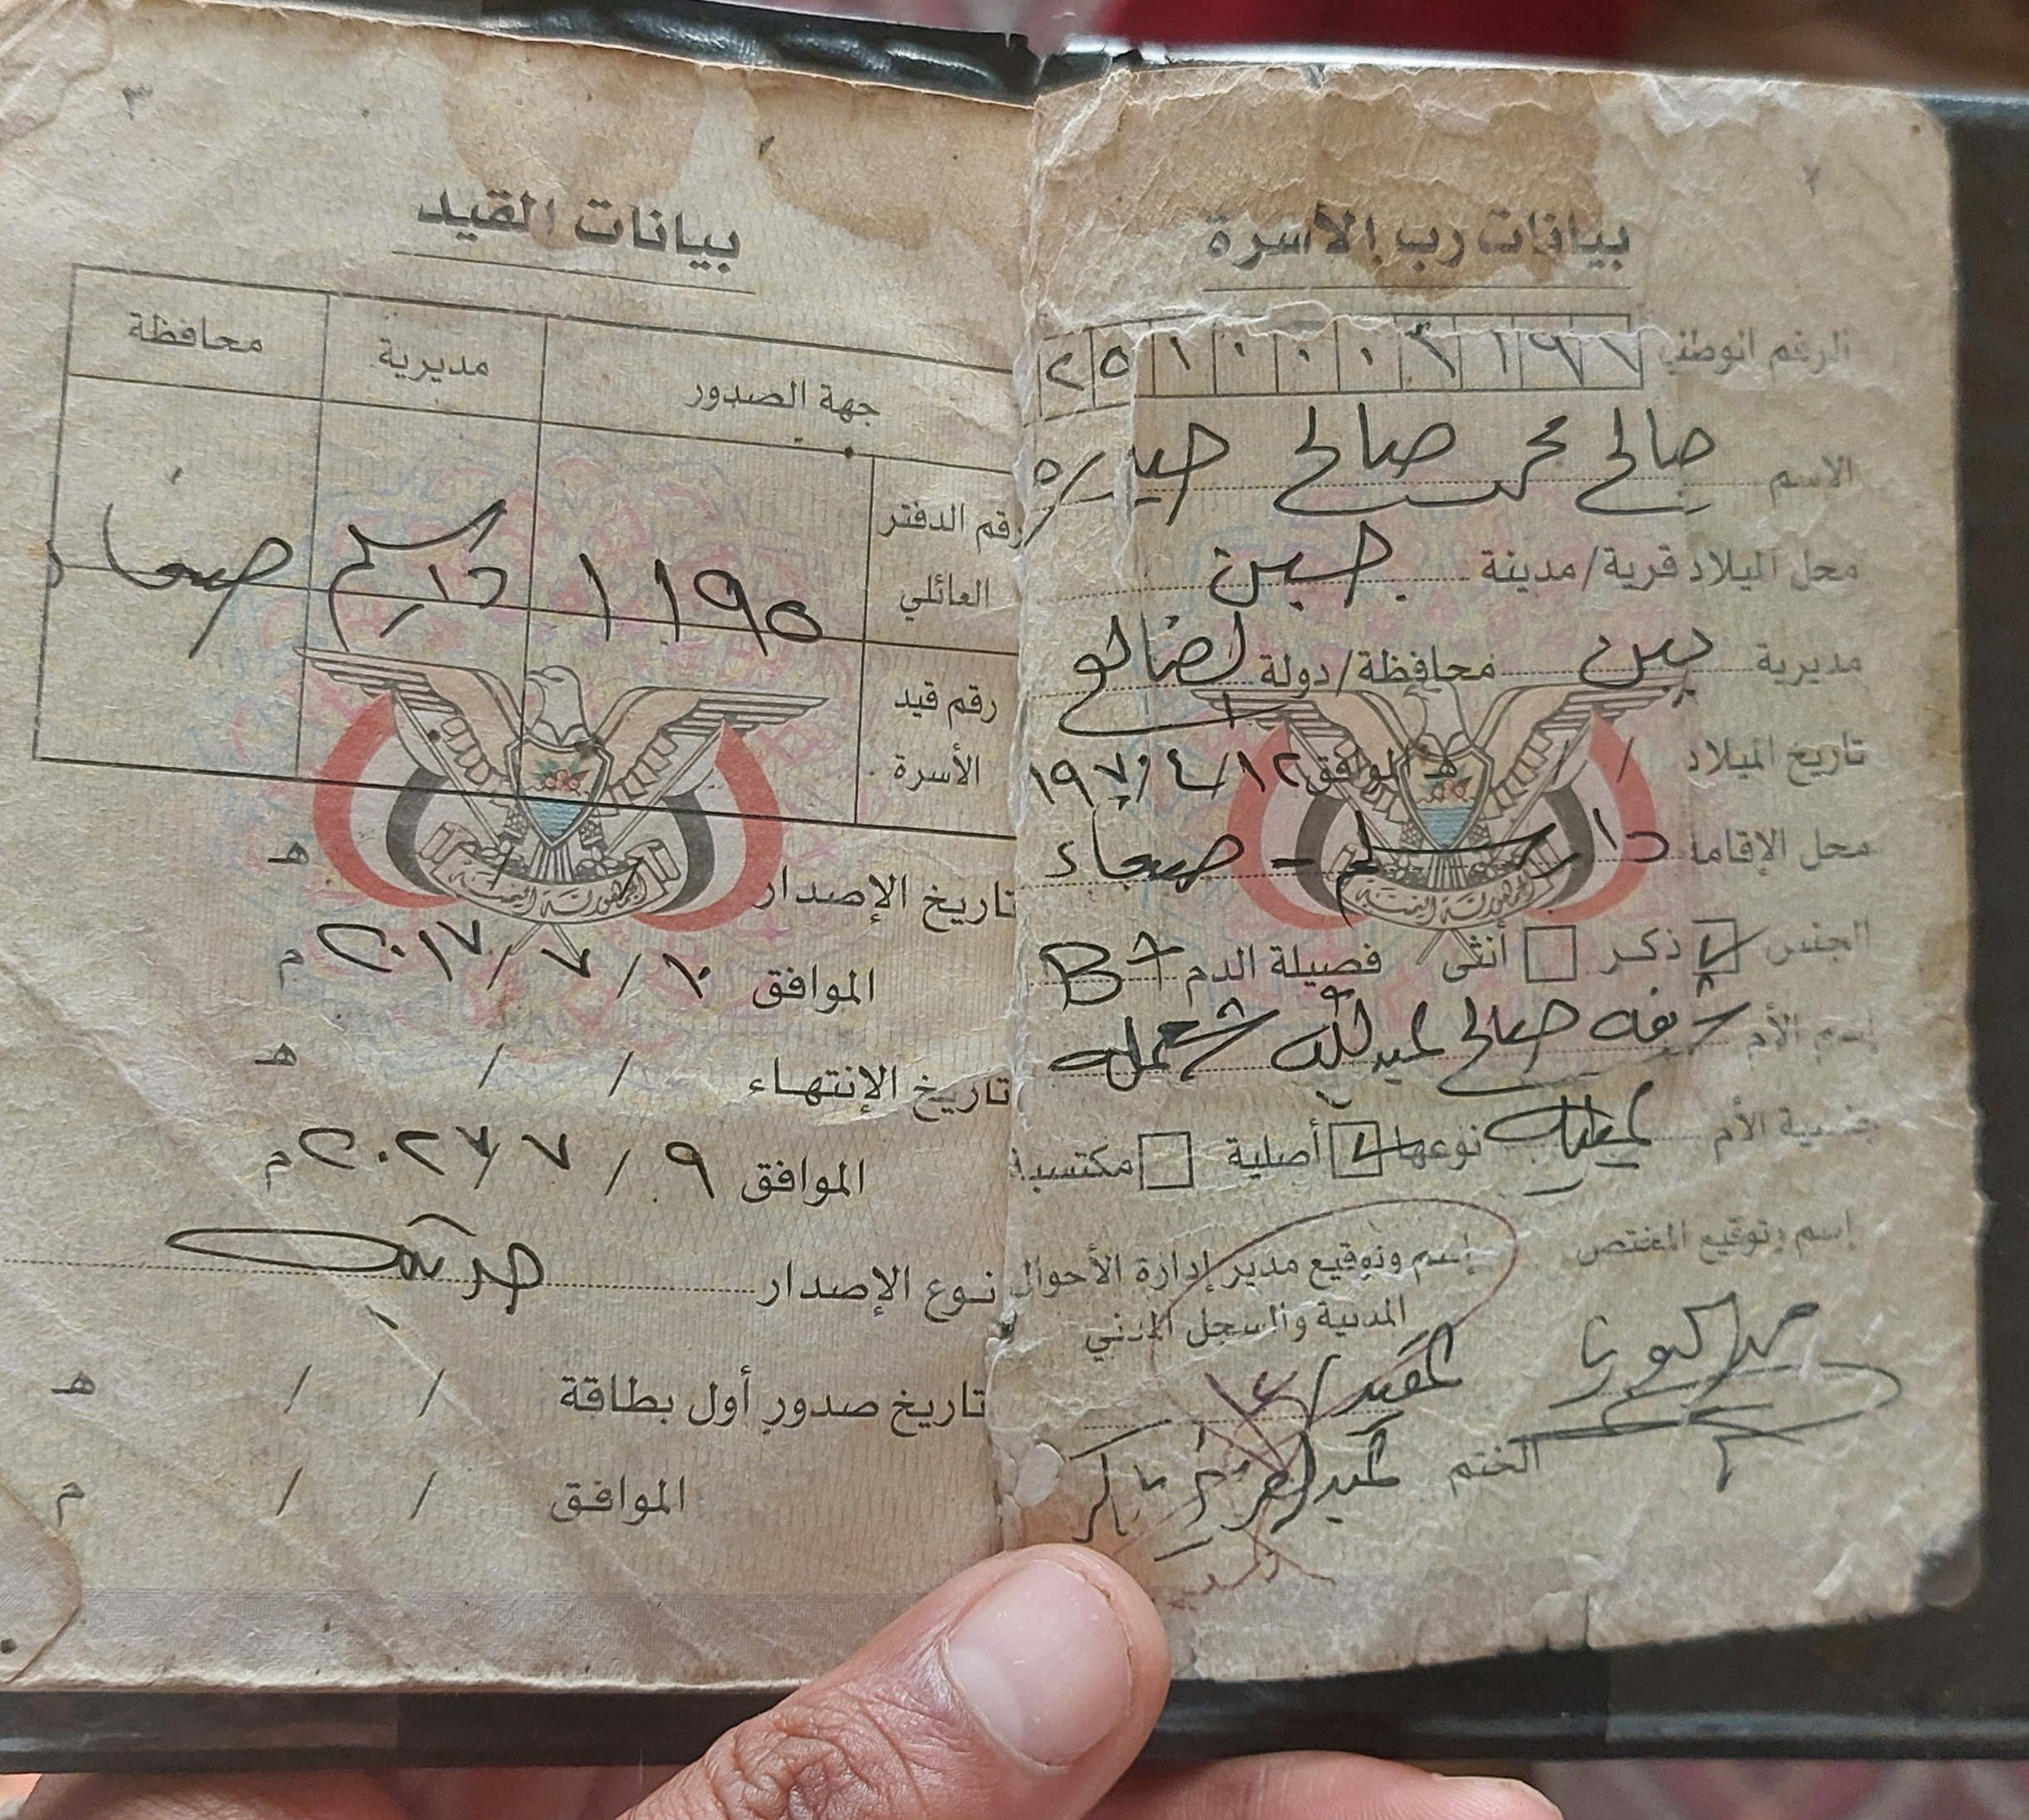 ٢
بيانات رب الأسرة
الرقم الوطني
الاسم صالح محمد صالح حيدره
محل الميلاد قرية/مدينة جبن
مديرية جبن محافظة/دولة الضالع
تاريخ الميلاد / / هـ الموافق ١٢/٤/١٩٧٠
محل الإقامة دار سلم - صنعاء
الجنس ذكر أنثى فصيلة الدم B+
إسم الأم صالح عبدالله
جنسية الأم نوعها أصلية مكتسبة
إسم وتوقيع المختص
إسم وتوقيع مدير إدارة الأحوال
المدنية والسجل المدني
العقيد/
الختم
٣
بيانات القيد
جهة الصدور مديرية محافظة
رقم الدفتر
العائلي
١١٩٥ دار سلم صنعاء
رقم قيد
الأسرة
تاريخ الإصدار / / هـ
الموافق ١٠/٧/٢٠١٧ م
تاريخ الإنتهاء / / هـ
الموافق ٩/٧/٢٠٢٧ م
نوع الإصدار
تاريخ صدور أول بطاقة / / هـ
الموافق / / م
الجمهورية اليمنية
الجمهورية اليمنية